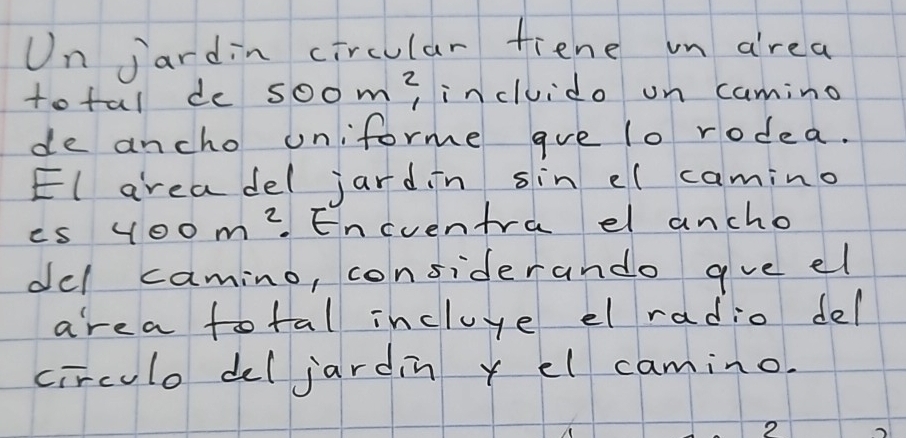 Un jardín circular tiene un área
total de 500 m², incluido un camino
de ancho uniforme que lo rodea.
El área del jardín sin el camino
es 400 m². Encuentra el ancho
del camino, considerando que el
área total incluye el radio del
círculo del jardín y el camino.